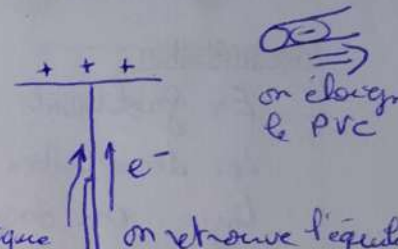 + + +
-
on éloign
le PVC
e⁻
que
on retrouve l'équil